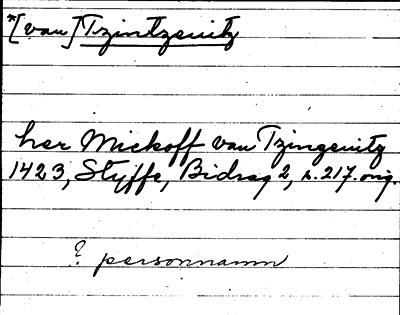 *[van] Tzintzenitz
her Mickoff van Tzingenitz
1423, Styffe, Bidrag 2, s. 217. orig.
? personnamn